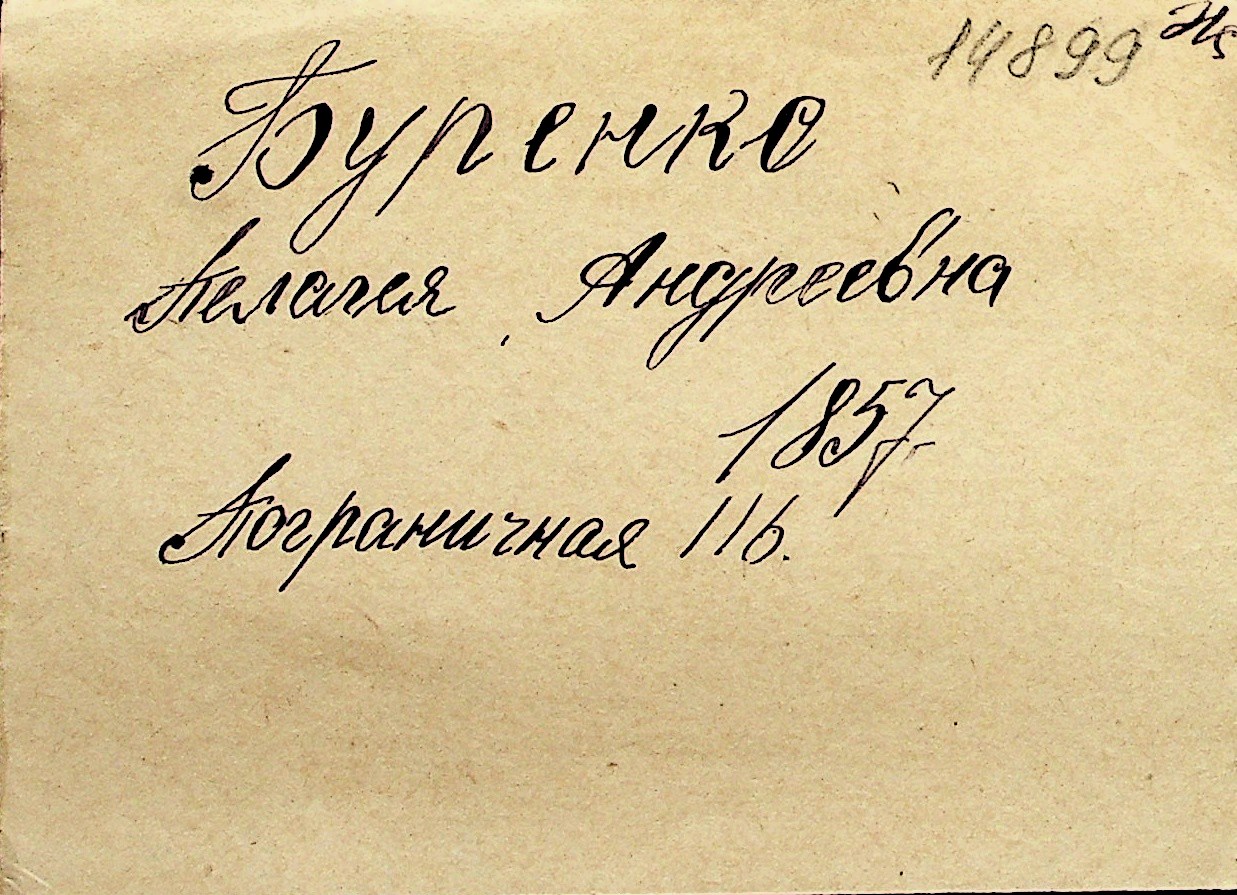 14899
Буренко
Пелагея Андреевна
1857
Пограничная 116.